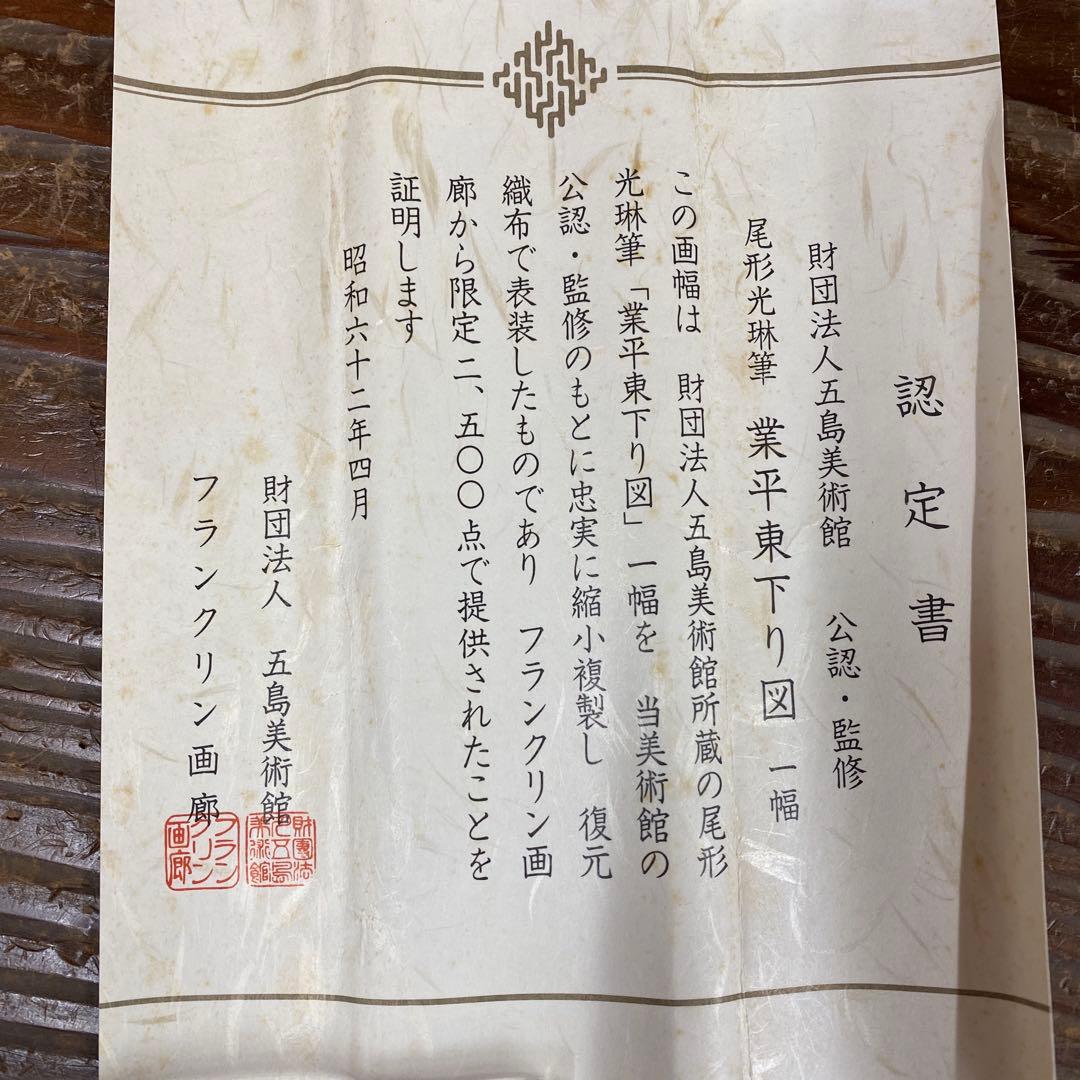 認定書
財団法人五島美術館 公認・監修
尾形光琳筆 業平東下り図 一幅
この画幅は 財団法人五島美術館所蔵の尾形
光琳筆「業平東下り図」一幅を 当美術館の
公認・監修のもとに忠実に縮小複製し 復元
織布で表装したものであり フランクリン画
廊から限定二、五〇〇点で提供されたことを
証明します
昭和六十二年四月
財団法人 五島美術館
フランクリン画廊
財團法
人五島
美術館
フラン
クリン
画廊